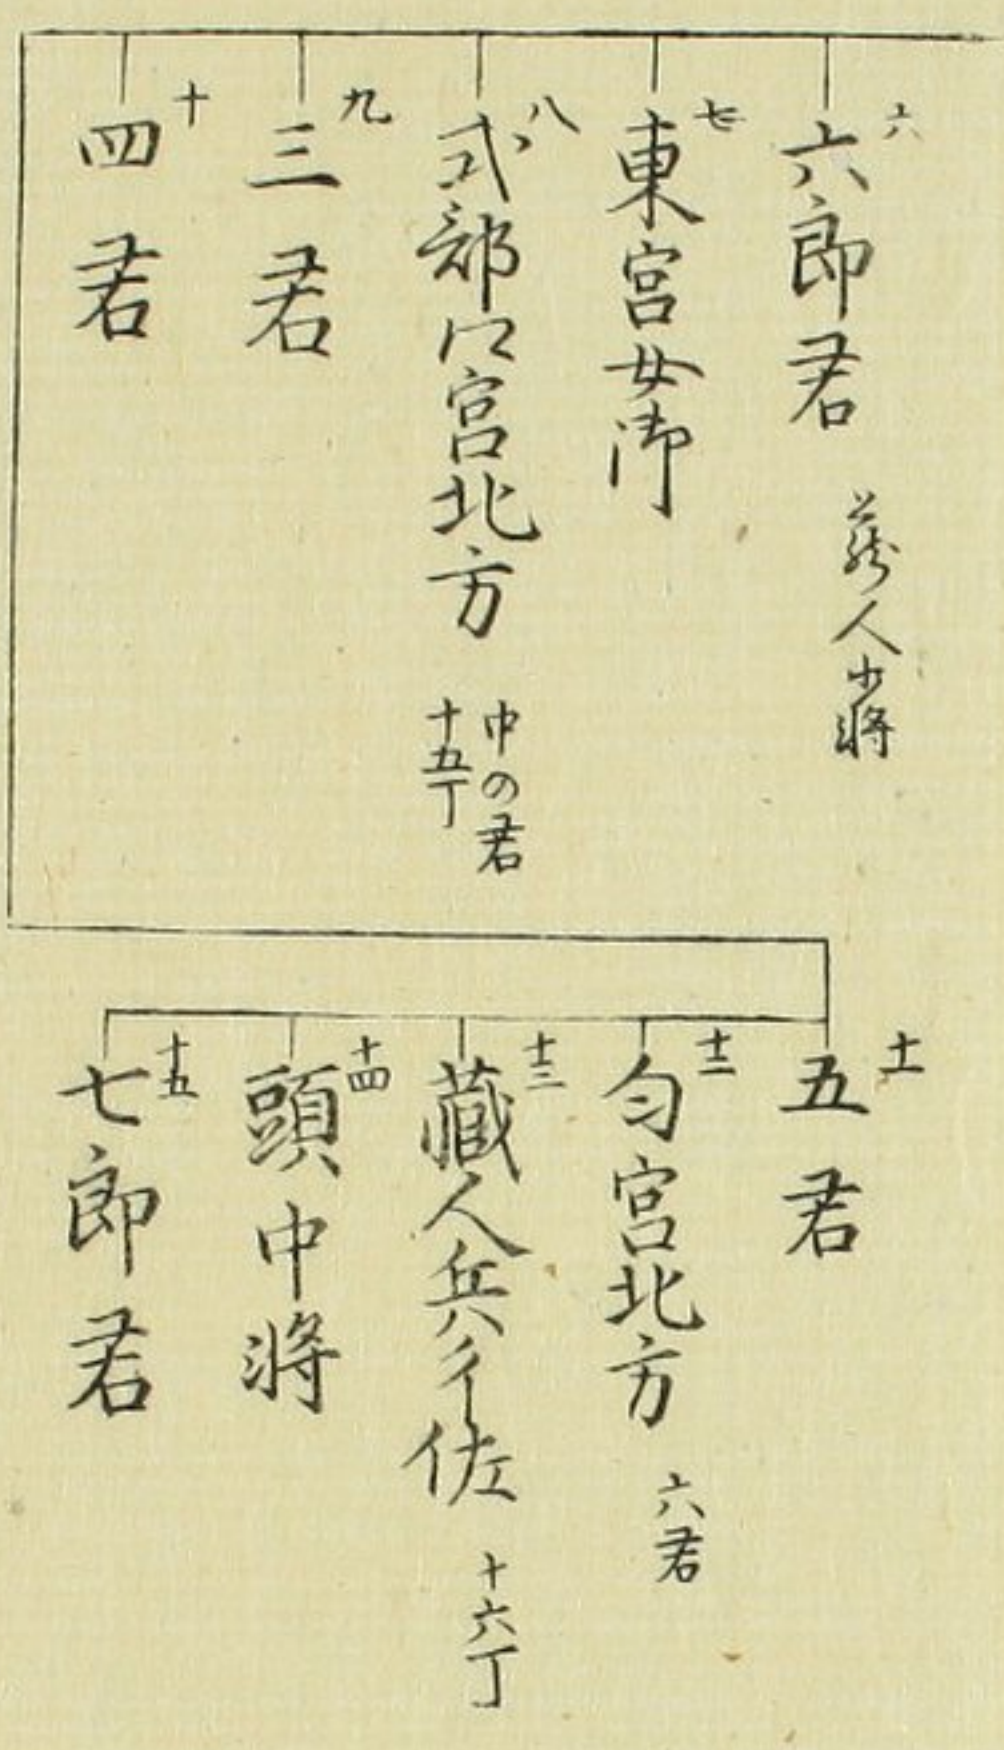 六
六郎君
蔵人少将
七
東宮女御
八
式部卿宮北方
中の君
十五丁
九
三君
十
四君
十一
五君
十二
匂宮北方
六君
十三
蔵人兵衛佐
十六丁
十四
頭中将
十五
七郎君